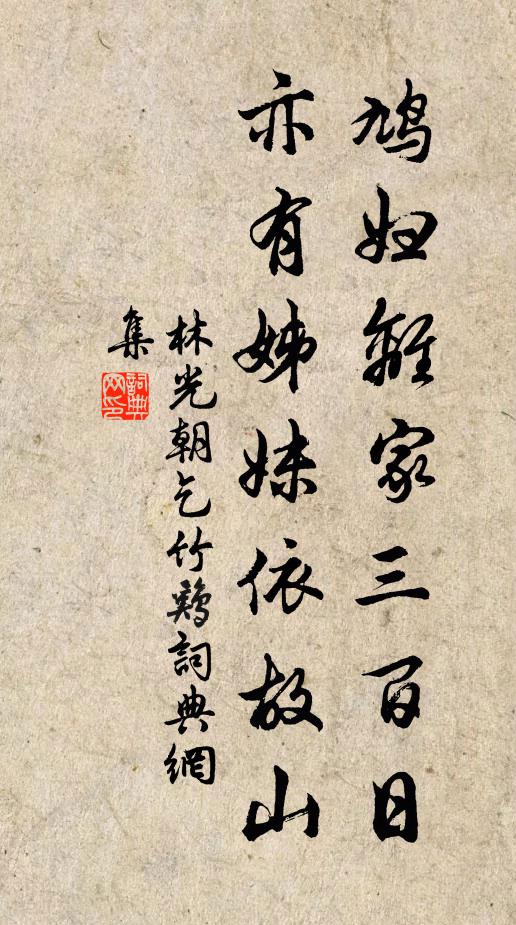 鸠妇離家三百日
亦有姊妹依故山
林光朝乞竹鸡詞典網
集
詞典
网印